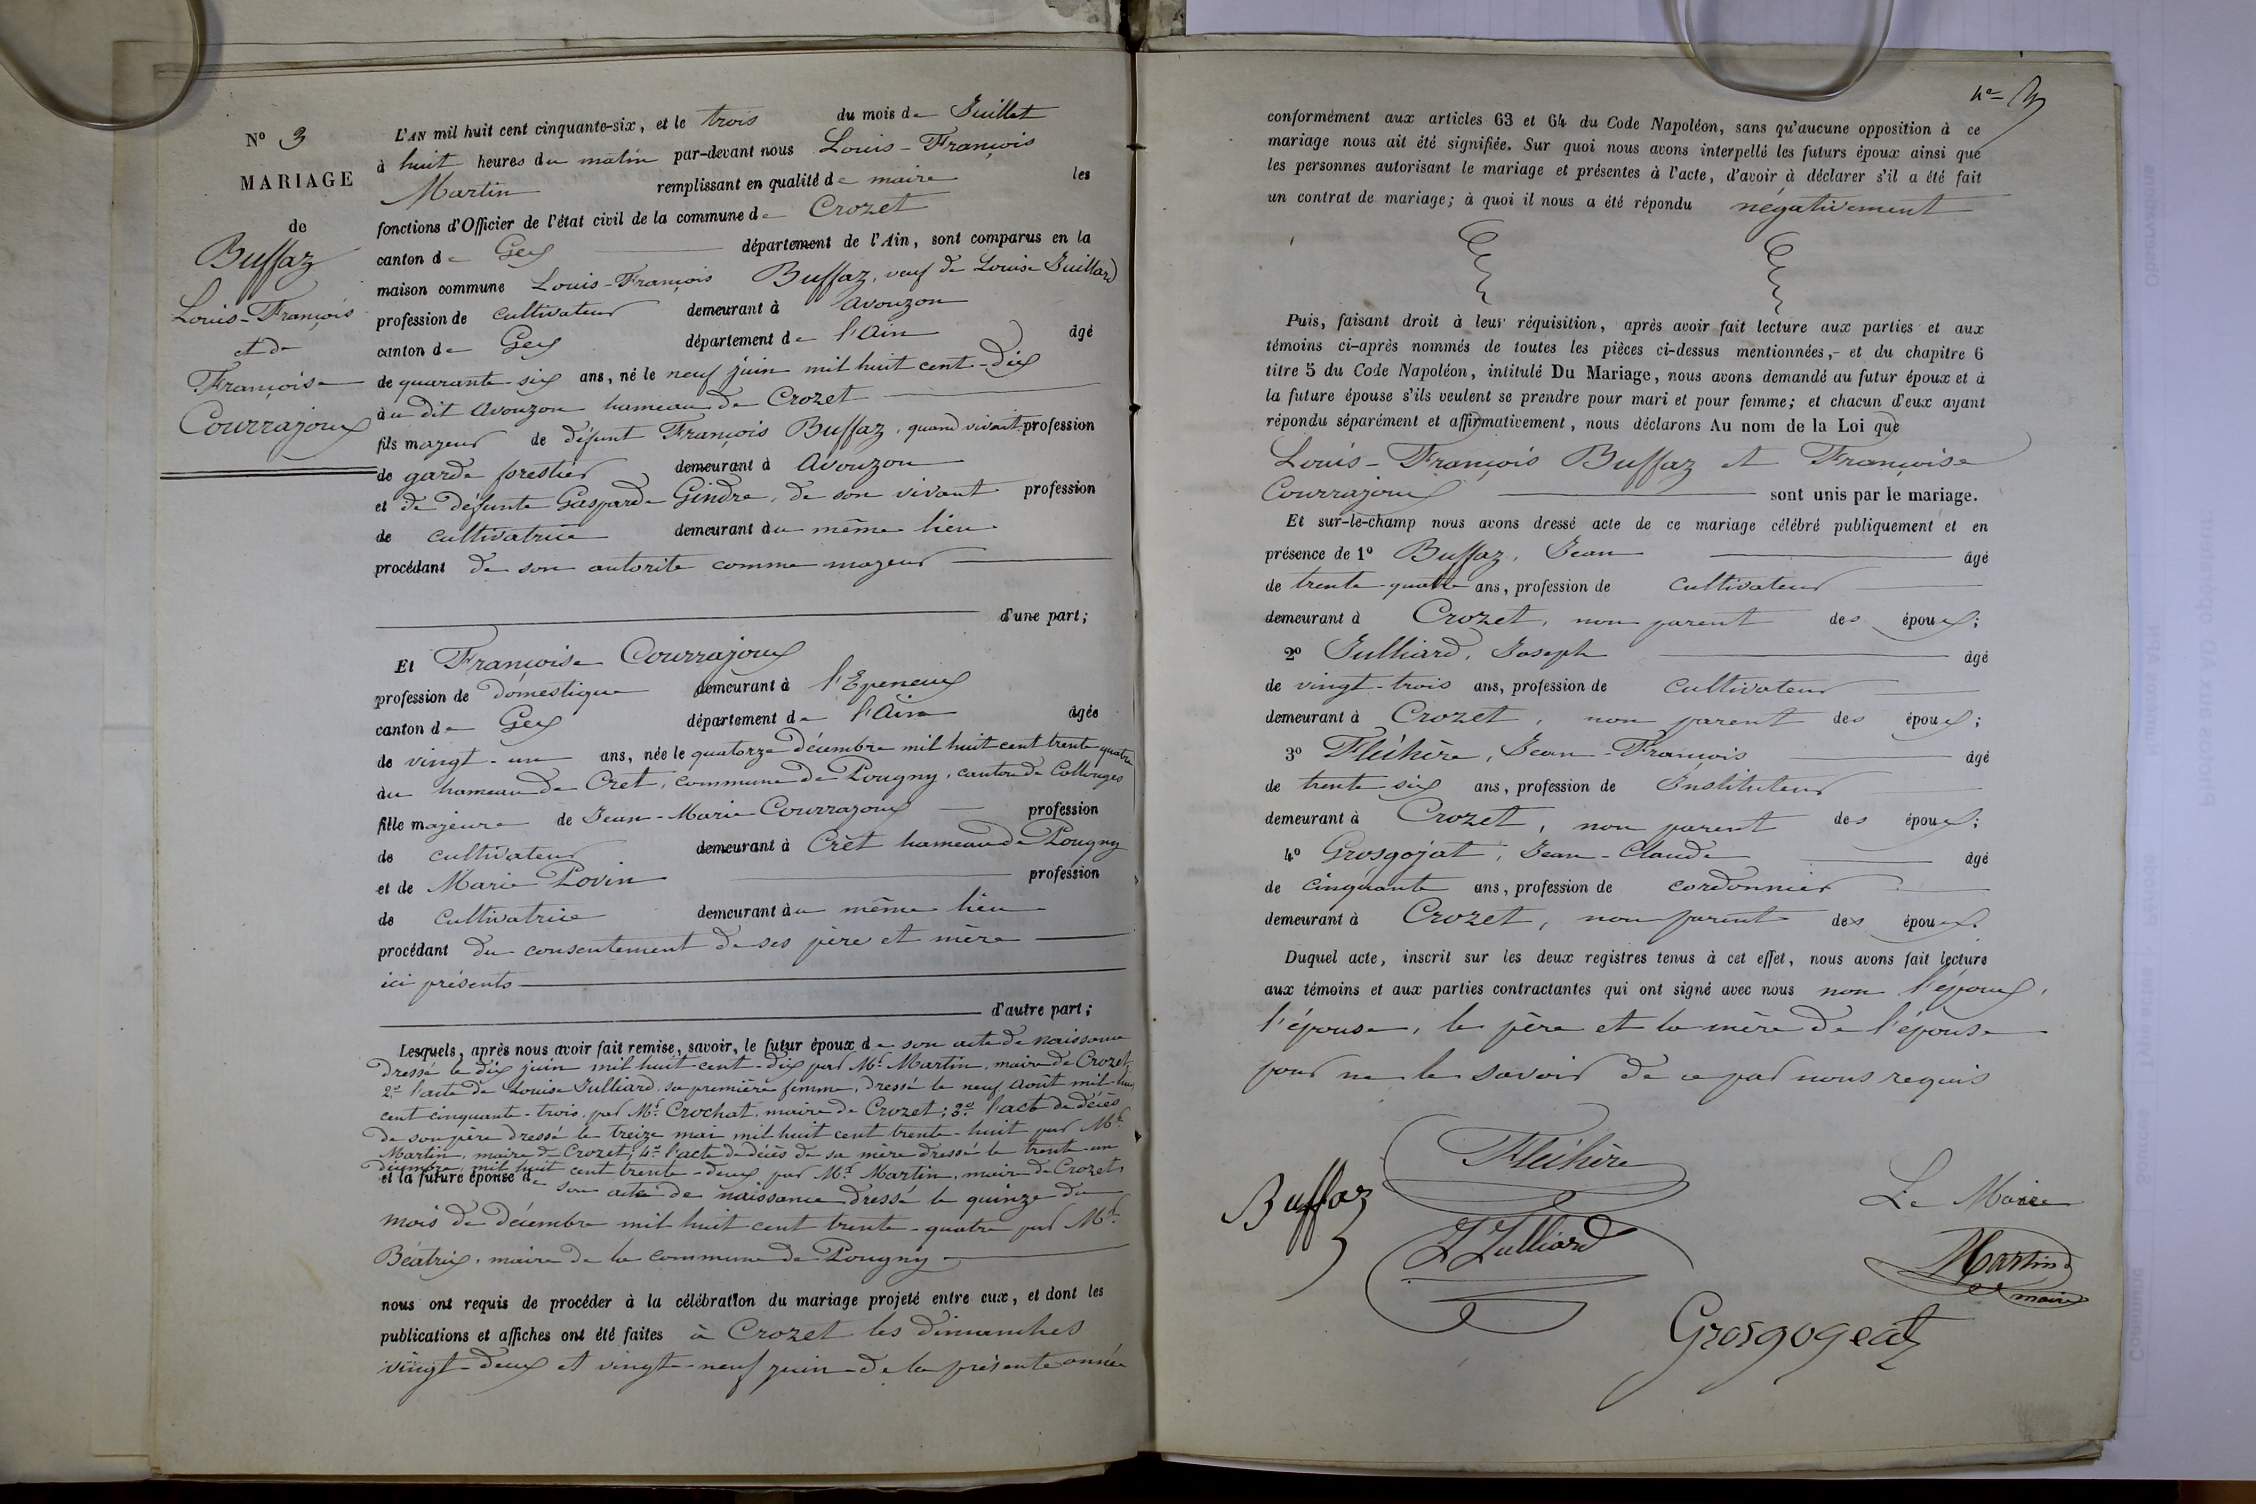 N° 3
MARIAGE
de
Buffaz
Louis-François
et de
Françoise
Courrajoux
L'AN mil huit cent cinquante-six, et le trois du mois de Juillet
à huit heures du matin par-devant nous Louis-François
Martin remplissant en qualité de maire les
fonctions d'Officier de l'état civil de la commune de Crozet
canton de Gex département de l'Ain, sont comparus en la
maison commune Louis-François Buffaz, veuf de Louise Juillard
profession de cultivateur demeurant à Avouzon
canton de Gex département de l'Ain âgé
de quarante-six ans, né le neuf juin mil huit cent-dix
au dit Avouzon hameau de Crozet
fils majeur de défunt François Buffaz, quand vivait profession
de garde forestier demeurant à Avouzon
et de défunte Gasparde Gindre, de son vivant profession
de cultivatrice demeurant au même lieu
procédant de son autorité comme majeur
d'une part;
Et Françoise Courrajoux
profession de domestique demeurant à l'Epeneux
canton de Gex département de l'Ain âgée
de vingt-un ans, née le quatorze décembre mil huit cent trente quatre
au hameau de Crêt, commune de Pougny, canton de Collonges
fille majeure de Jean-Marie Courrajoux profession
de cultivateur demeurant à Crêt hameau de Pougny
et de Marie Povin profession
de cultivatrice demeurant au même lieu
procédant du consentement de ses père et mère
ici présents
d'autre part;
Lesquels, après nous avoir fait remise, savoir, le futur époux de son acte de naissance
dressé le dix juin mil huit cent-dix par Mr Martin, maire de Crozet,
2° l'acte de Louise Julliard, sa première femme, dressé le neuf Août mil-huit
cent cinquante-trois, par Mr Crochat, maire de Crozet; 3° l'acte de décès
de son père dressé le treize mai mil huit cent trente-huit par Mr
Martin, maire de Crozet; 4° l'acte de décès de sa mère dressé le trente-un
décembre, mil huit cent trente-deux, par Mr Martin, maire de Crozet,
et la future épouse de son acte de naissance dressé le quinze du
mois de décembre mil huit cent trente-quatre par Mr
Béatrix, maire de la commune de Pougny
nous ont requis de procéder à la célébration du mariage projeté entre eux, et dont les
publications et affiches ont été faites à Crozet les dimanches
vingt-deux et vingt-neuf juin de la présente année
conformément aux articles 63 et 64 du Code Napoléon, sans qu'aucune opposition à ce
mariage nous ait été signifiée. Sur quoi nous avons interpellé les futurs époux ainsi que
les personnes autorisant le mariage et présentes à l'acte, d'avoir à déclarer s'il a été fait
un contrat de mariage; à quoi il nous a été répondu négativement
Puis, faisant droit à leur réquisition, après avoir fait lecture aux parties et aux
témoins ci-après nommés de toutes les pièces ci-dessus mentionnées,- et du chapitre 6
titre 5 du Code Napoléon, intitulé Du Mariage, nous avons demandé au futur époux et à
la future épouse s'ils veulent se prendre pour mari et pour femme; et chacun d'eux ayant
répondu séparément et affirmativement, nous déclarons Au nom de la Loi que
Louis-François Buffaz et Françoise
Courrajoux sont unis par le mariage.
Et sur-le-champ nous avons dressé acte de ce mariage célébré publiquement et en
présence de 1° Buffaz, Jean âgé
de trente-quatre ans, profession de cultivateur
demeurant à Crozet, non parent des époux;
2° Julliard, Joseph âgé
de vingt-trois ans, profession de cultivateur
demeurant à Crozet, non parent des époux;
3° Fléhère, Jean-François âgé
de trente six ans, profession de Instituteur
demeurant à Crozet, non parent des époux;
4° Grosgojat, Jean-Claude âgé
de cinquante ans, profession de cordonnier
demeurant à Crozet, non parent des époux.
Duquel acte, inscrit sur les deux registres tenus à cet effet, nous avons fait lecture
aux témoins et aux parties contractantes qui ont signé avec nous non l'époux,
l'épouse, le père et la mère de l'épouse
pour ne le savoir de ce par nous requis
Fléhère
Buffaz
Le Maire
J Julliard
Martin
maire
Grosgogeat